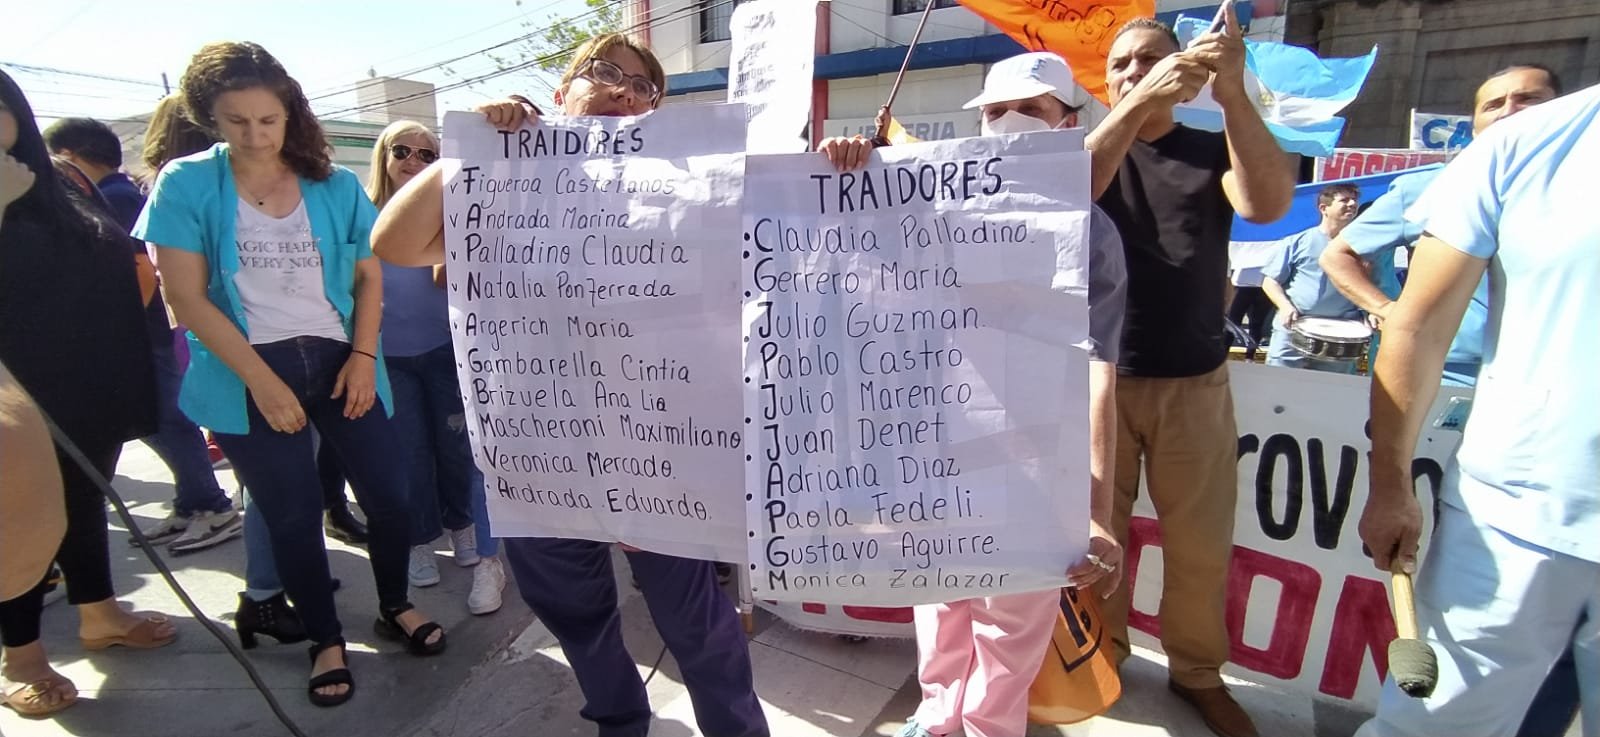 TRAIDORES
Figueroa Castellanos
Andrada Marina
Palladino Claudia
Natalia Ponferrada
Argerich Maria
Gambarella Cintia
Brizuela Analia
Mascheroni Maximiliano
Veronica Mercado.
Andrada Eduardo.
TRAIDORES
Claudia Palladino.
Gerrero Maria
Julio Guzman.
Pablo Castro
Julio Marenco
Juan Denet.
Adriana Diaz
Paola Fedeli.
Gustavo Aguirre.
Monica Zalazar
AGIC HAPP
VERY NIG
LIBRERIA
CA
HOSPI
rovin
CON